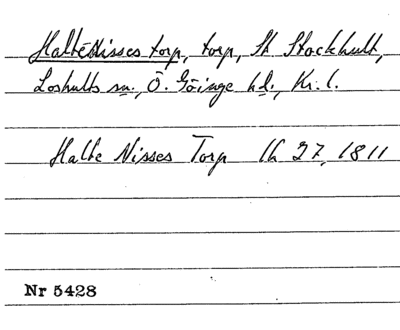 Halte Nisses torp, torp, St Stockhult,
Loshults sn., Ö. Göinge hd., Kr. l.
Halte Nisses Torp lh 27, 1811
Nr 5428